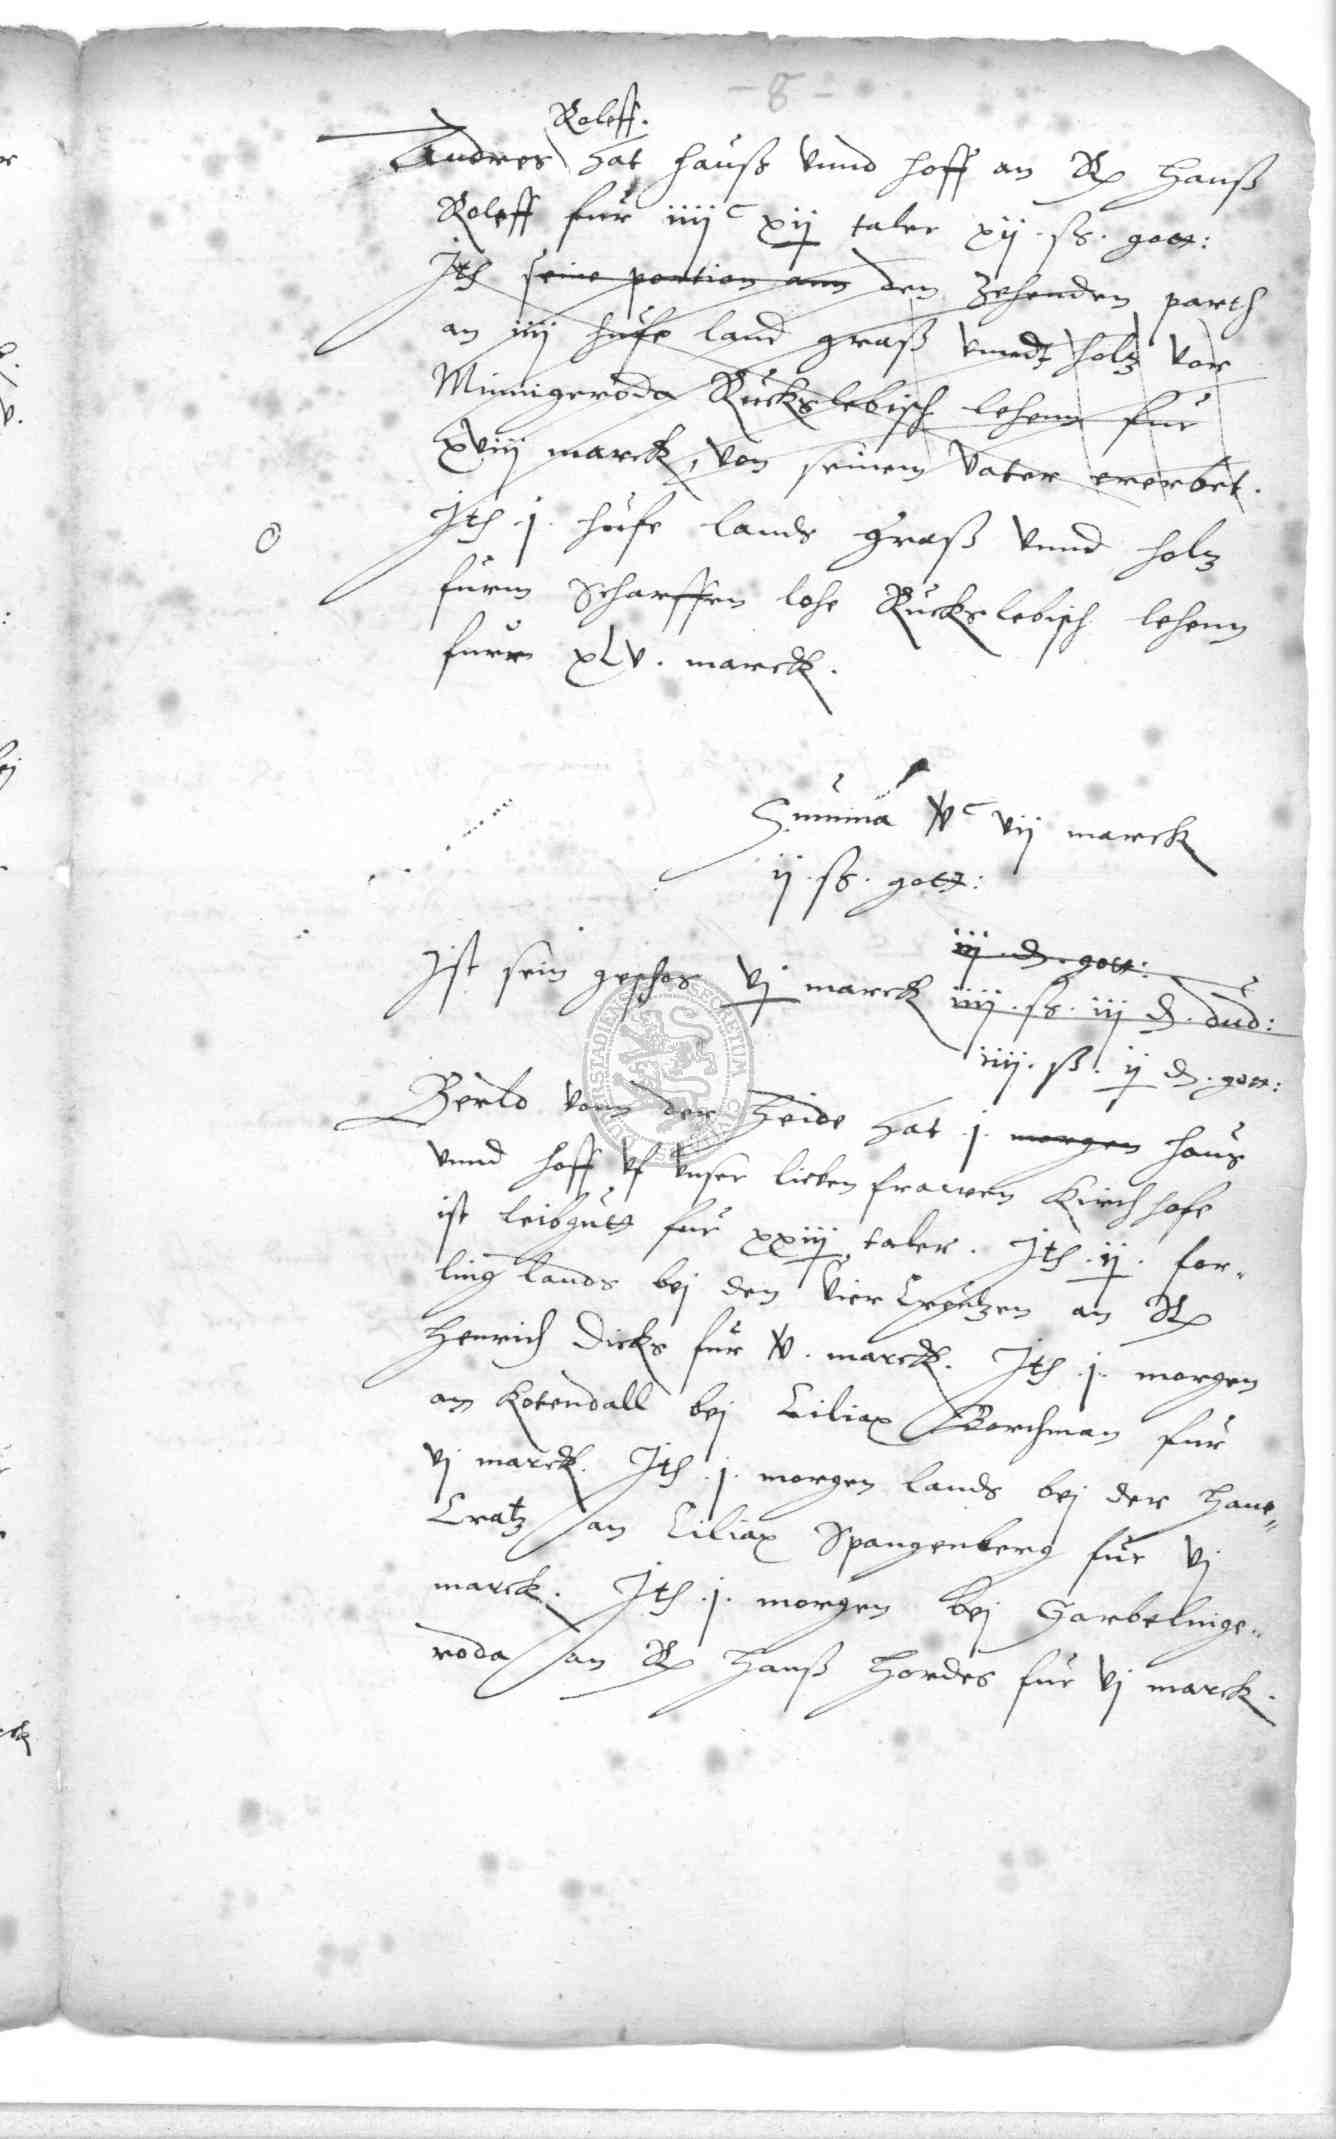 - 8 -
Roleff.
Andres hat hauß vnnd hoff an Rp Hanß
Roleff fur iiijc xij taler xij. ß. gott:
Jth seine portion ann den zehenden parth
an iiij hufe land graß vnndt holtz vor
Minnigeroda Rucksslebisch lehenn fur
xviij marck, von seinem vater ererbet.
Jth .j. hufe lands graß vnnd holtz
furm Scharffen lohe Ruckslebisch lehenn
furr xLv. marck.
Summa vc vij marck
ij. ß. gott:
iij. d. gott:
Jst sein geschos vj marck iiij. ß. iij d. dud:
iiij. ß. ij d. gott:
Berld vonn der Heide hat .j. morgen haus
vnnd hoff vf vnser lieben frawen Kirchhofe
ist leibgutt fur xxiij taler. Jth .ij. for-
ling lands bej den vier Creutzen an Rp
Henrich Dicks fur v. marck. Jth .j. morgen
am Kotendall bej Ciliax Borchman fur
vj marck. Jth .j. morgen lands bej der Hane-
Cratz an Ciliax Spangenberg fur vj
marck. Jth .j. morgen bej Garbelinge-
roda an Rp Hanß Hordes fur vj marck.